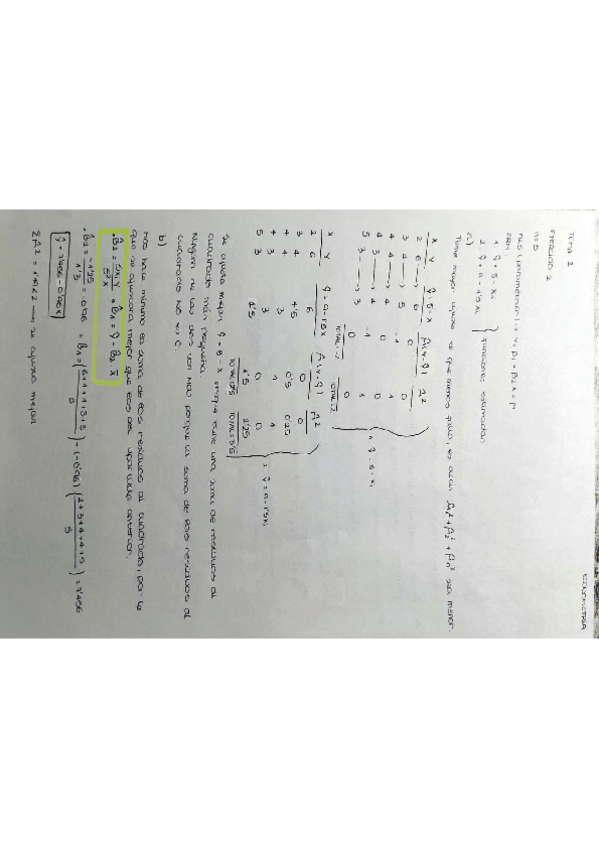 ECONOMETRÍA
TEMA 2
EJERCICIO 2
n=5
MLS (paramétrica) => Y = β1 + β2 X + μ
FRM:
1. Ŷ = 8 - Xi
2. Ŷ = 9 - 1'5 Xi } Funciones estimadas
a)
Tiene mejor ajuste el que menos falla, es decir û1² + û2² + ûn² sea menor.
X Y Ŷ = 8 - X û(Y - Ŷ) û²
2 6 → 6 0 0
3 4 → 5 -1 1
4 4 → 4 0 0
4 → 4 0 0
5 3 → 3 0 0
} Ŷ = 8 - Xi
X Y Ŷ = 9 - 1'5X û(Y - Ŷ) û²
2 6 6 0 0
3 4 4'5 0'5 0'25
4 4 3 1 1
4 3 3 0 0
5 3 1'5 1'5 2'25
} Ŷ = 9 - 1'5Xi
Se ajusta mejor Ŷ = 8 - X porque tiene una suma de residuos al
cuadrado más pequeña.
Ninguna de las dos son MCO porque la suma de los residuos al
cuadrado no es 0.
b)
MCO hace mínimo la suma de los residuos al cuadrado, por lo
que se ajustará mejor que los del apartado anterior.
• β̂2 = SX,Y / S²X • β̂1 = Ȳ - β̂2 X̄
• β̂2 = -1'25 / 1'3 = -0'96 = β̂1 = (6+4+4+3+3 / 5) - (-0'96) (2+3+4+4+5 / 5) = 7'456
Ŷ = 7'456 - 0'96Xi
→ se ajusta mejor